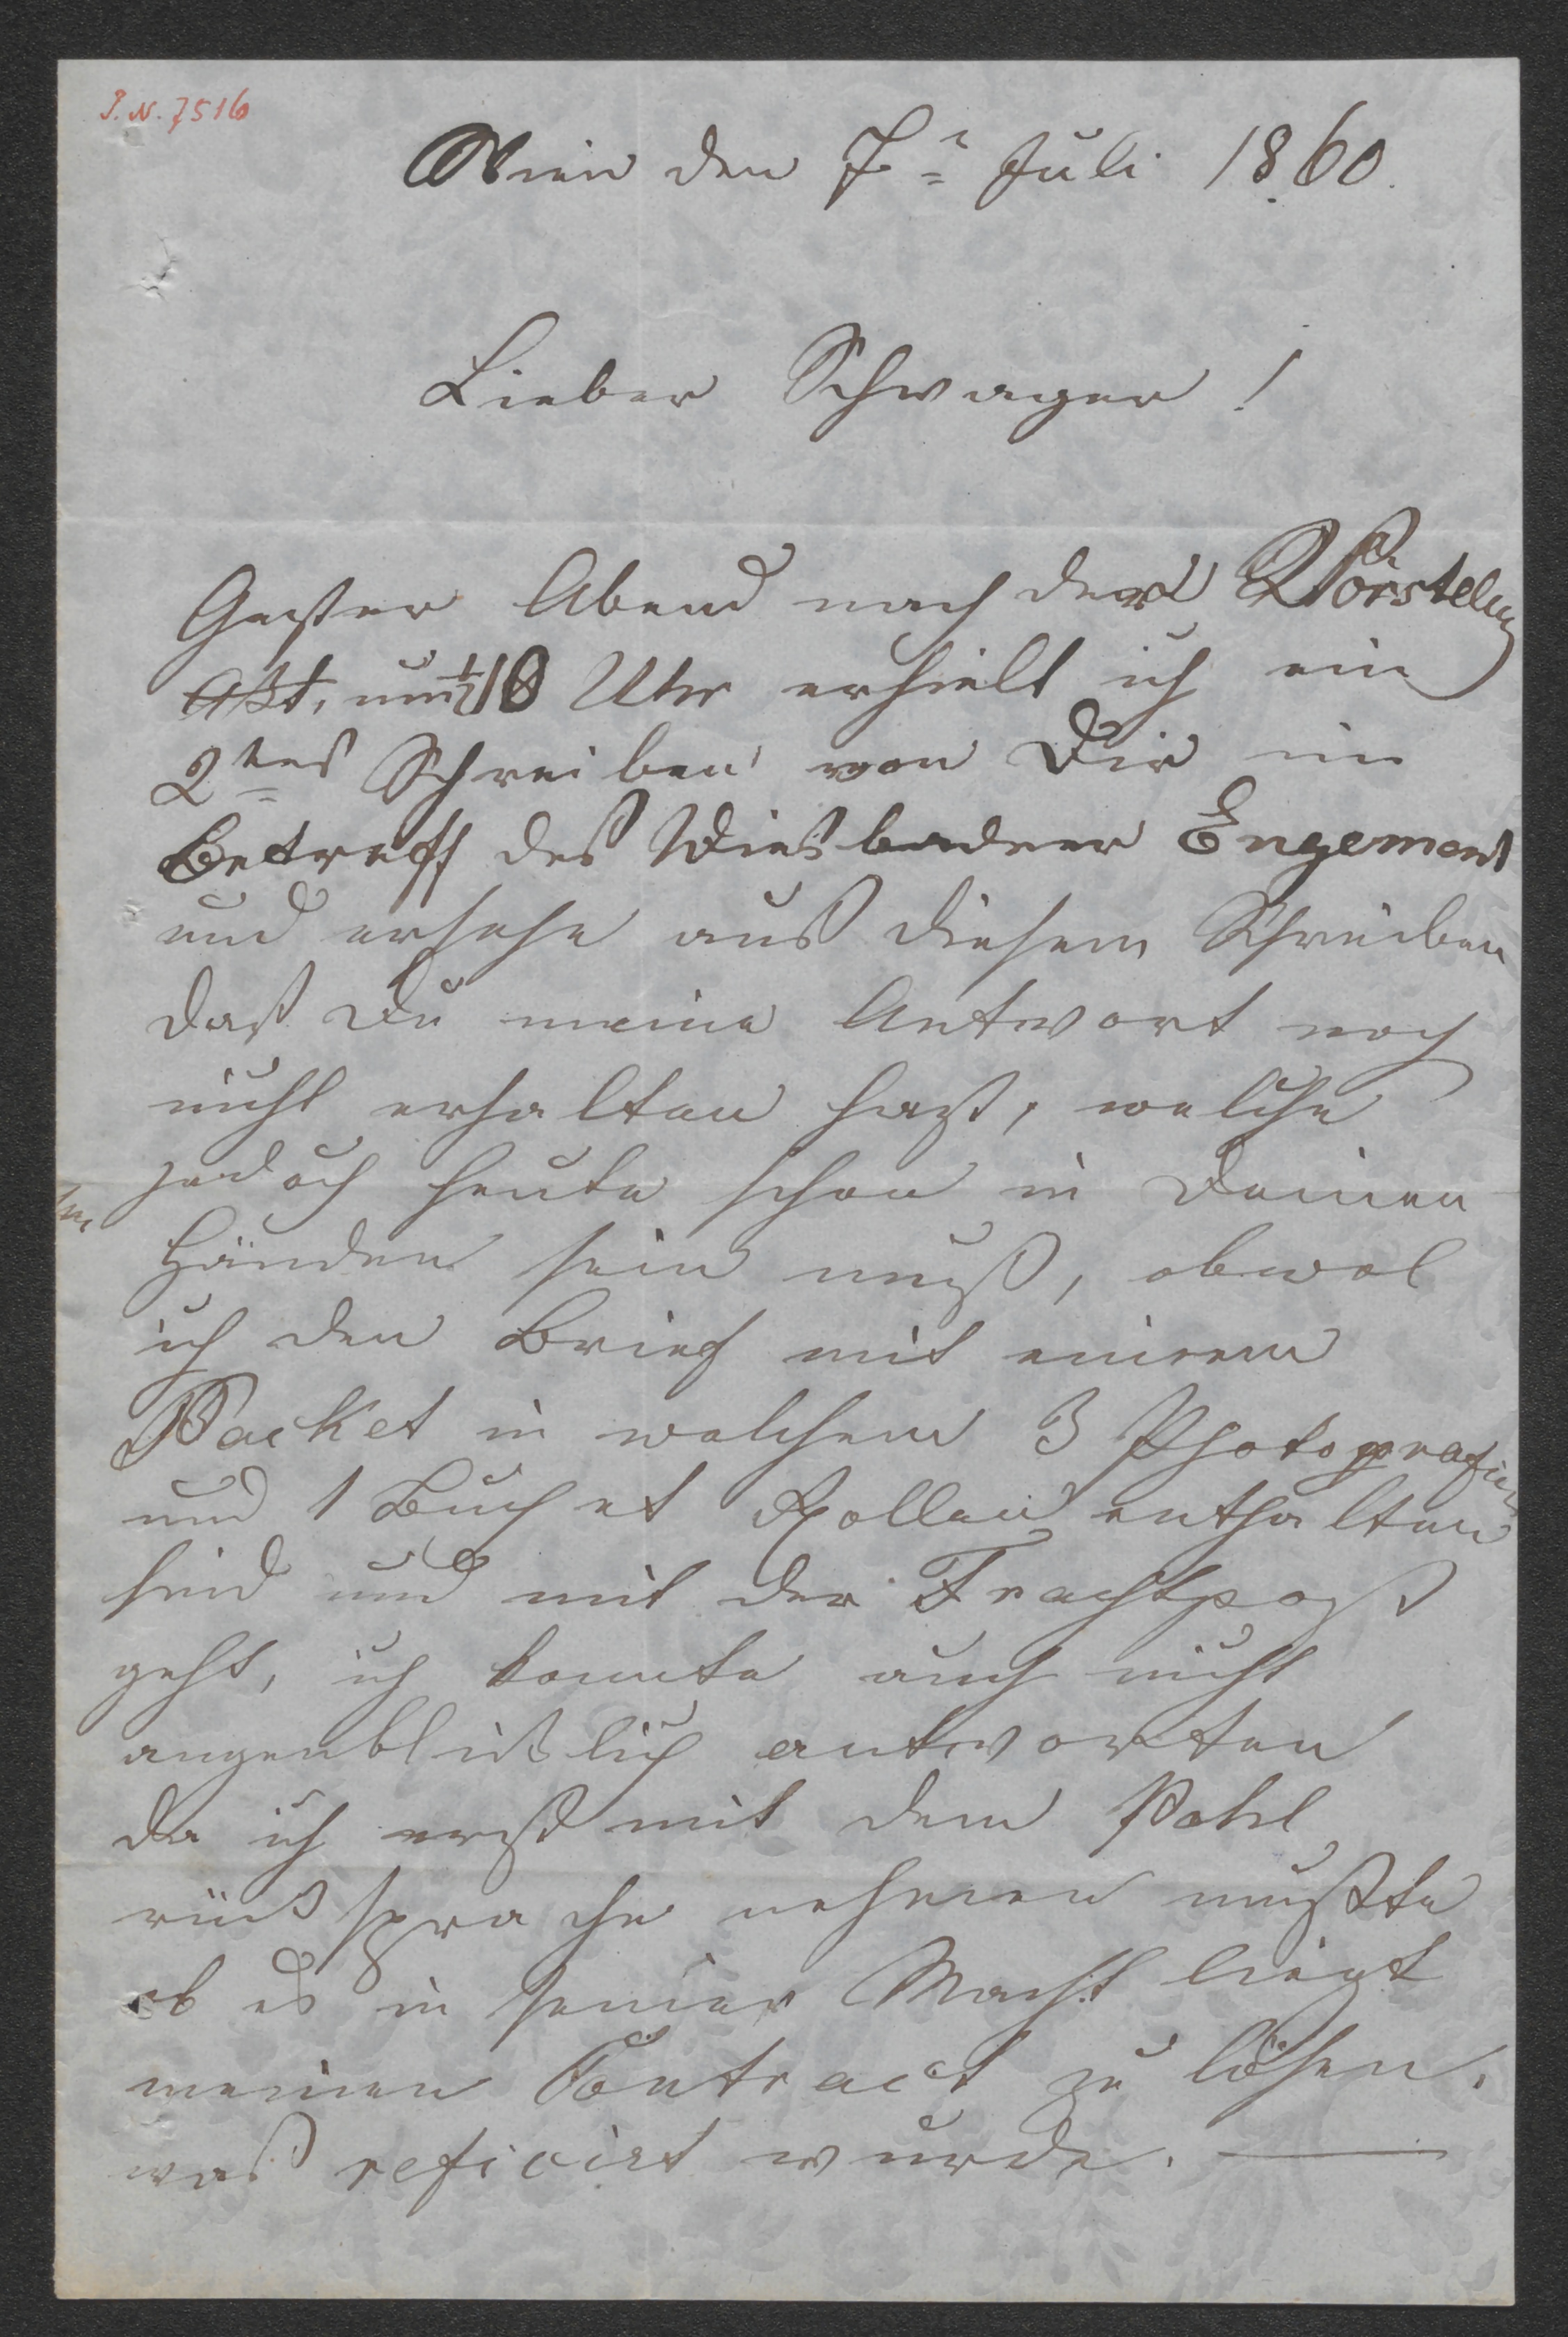 I. N. 7516
Wien den 7t Juli 1860.
Lieber Schwager!
Gester Abend nach der Vorstelung
um ½10 Uhr erhielt ich ein
2tes Schreiben von Dir im
Betreff des Wiesbadner Engement
und ersehe auß diesem Schreiben
daß Du meine Antwort noch
nicht erhalten hast, welche
jedoch heute schon in Deinen
Händen sein muß, obwol
ich den Brief mit einem
Packet in welchem 3 Photografien
und 1 Buch et Rollen enthalten
sind und mit der Frachtpost
geht, ich konnte auch nicht
augenblicklich antworten
da ich erst mit dem Pohl
rücksprache nehmen mußte
ob es in seiner Macht liegt
meinen Contract zu lösen.
was reficirt wurde. —